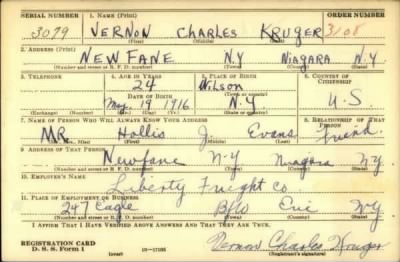 SERIAL NUMBER 1. NAME (Print) ORDER NUMBER
3079 VERNON CHARLES KRUGER 3108
(First) (Middle) (Last)
2. ADDRESS (Print)
NEWFANE N.Y NIAGARA N.Y.
(Number and street or R. F. D. number) (Town) (County) (State)
3. TELEPHONE 4. AGE IN YEARS 5. PLACE OF BIRTH 6. COUNTRY OF CITIZENSHIP
24 Wilson
DATE OF BIRTH (Town or county)
May 19 1916 N.Y U.S.
(Exchange) (Number) (Mo.) (Day) (Yr.) (State or country)
7. NAME OF PERSON WHO WILL ALWAYS KNOW YOUR ADDRESS 8. RELATIONSHIP OF THAT PERSON
MR. Hollis J. Evans friend.
(Mr., Mrs., Miss) (First) (Middle) (Last)
9. ADDRESS OF THAT PERSON
Newfane N-Y Niagara N.Y.
(Number and street or R. F. D. number) (Town) (County) (State)
10. EMPLOYER'S NAME
Liberty Freight Co.
11. PLACE OF EMPLOYMENT OR BUSINESS
247 Eagle Bflo Erie N-Y
(Number and street or R. F. D. number) (Town) (County) (State)
I AFFIRM THAT I HAVE VERIFIED ABOVE ANSWERS AND THAT THEY ARE TRUE.
REGISTRATION CARD
D. S. S. Form 1 (over) Vernon Charles Kruger
(Registrant's signature)